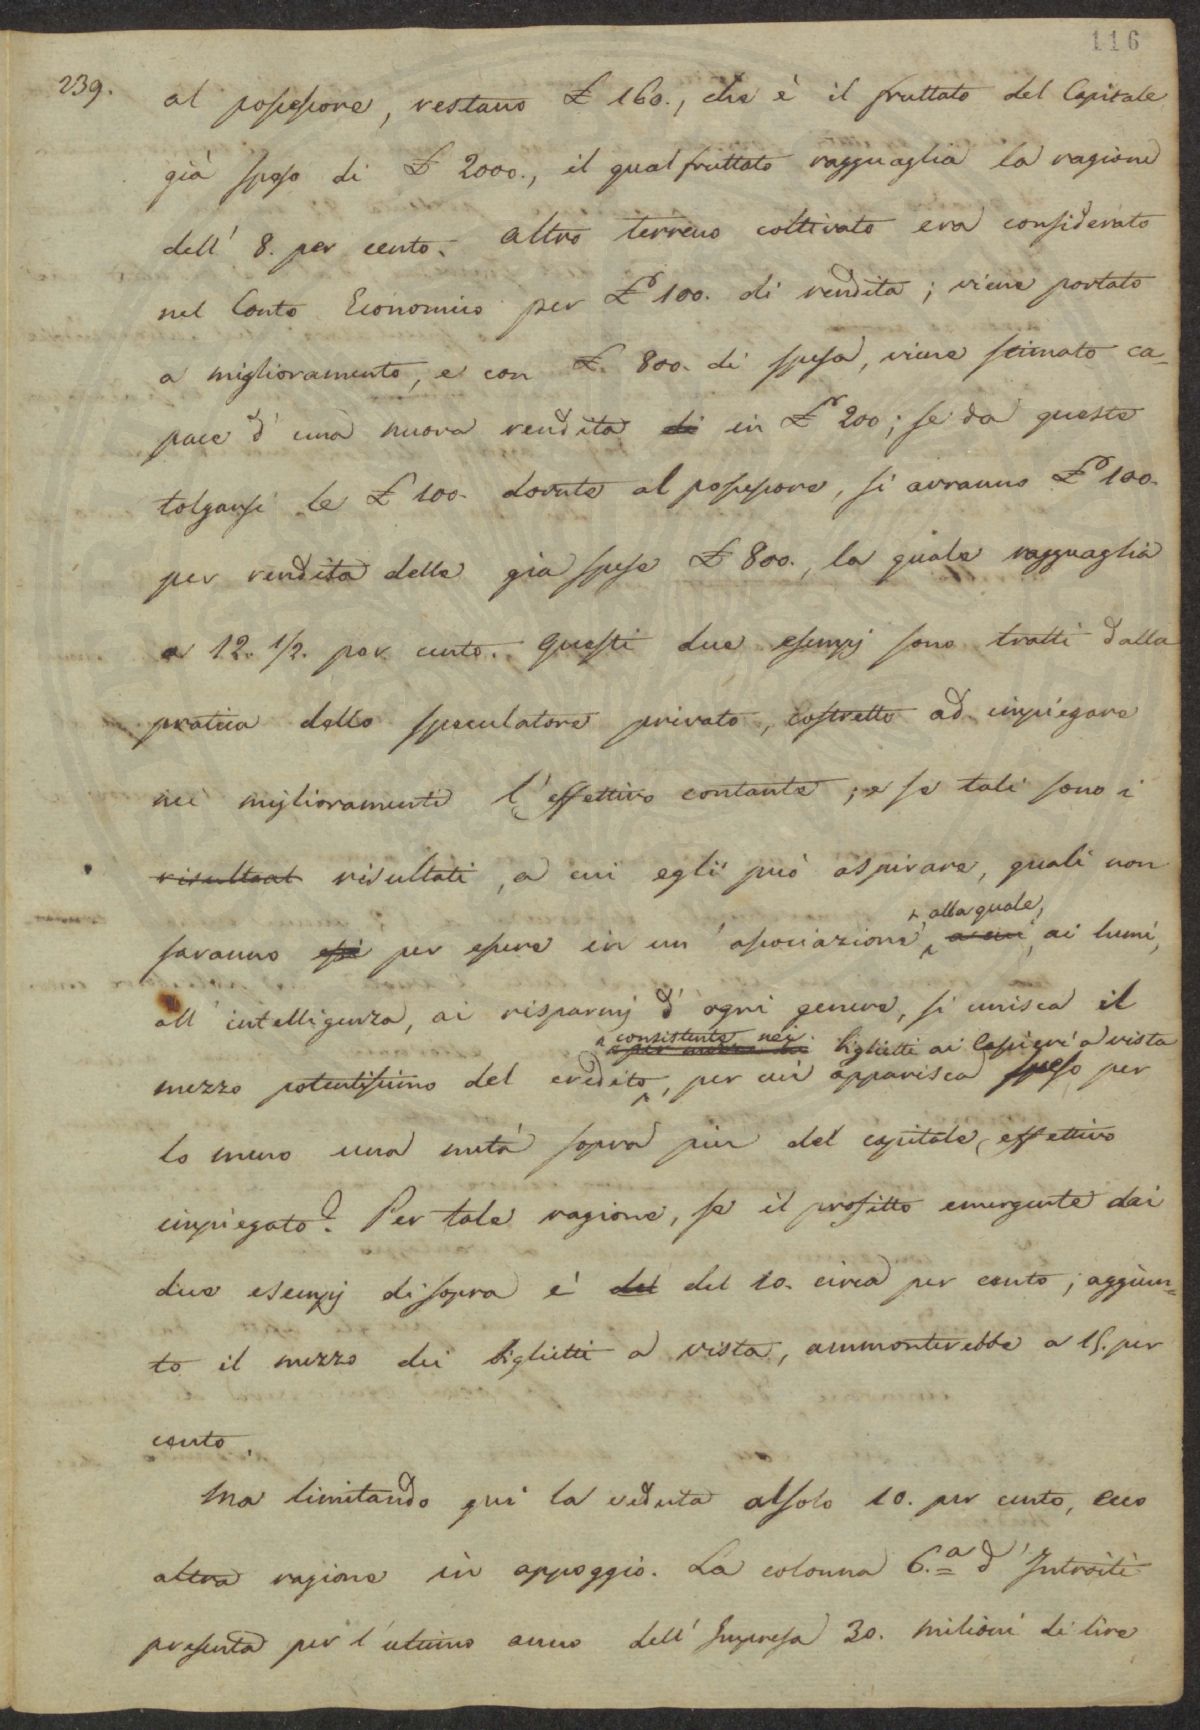 116
239.
al possessore, restano £ 160., che è il fruttato del Capitale
già speso di £ 2000., il qual fruttato ragguaglia la ragione
dell' 8. per cento. Altro terreno coltivato era considerato
nel Conto Economico per £ 100. di rendita; viene portato
a miglioramento, e con £ 800. di spesa, viene stimato ca=
pace d' una nuova rendita di in £ 200; se da queste
tolgansi le £ 100. dovute al possessore, si avranno £ 100.
per rendita delle già spese £ 800., la quale ragguaglia
a 12. 1/2. per cento. Questi due esempj sono tratti dalla
pratica dello speculatore privato, costretto ad impiegare
nei miglioramenti l' effettivo contante; e se tali sono i
risultaat risultati, a cui egli può aspirare, quali non
alla quale,
saranno essi per essere in un' associazione a cui, ai lumi,
all' intelligenza, ai risparmj d' ogni genere, si unisca il
consistente nei biglietti ai Cassieri a vista
mezzo potentissimo del credito, per cui apparisca speso per
lo meno una metà sopra più del capitale effettivo
impiegato? Per tale ragione, se il profitto emergente dai
due esempj di sopra è del del 10. circa per cento; aggiun=
to il mezzo dei biglietti a vista, ammonterebbe a 15. per
cento.
Ma limitando qui la veduta al solo 10. per cento, ecco
altra ragione in appoggio. La colonna 6.a d' Introiti
presenta per l' ultimo anno dell' Impresa 30. milioni di lire